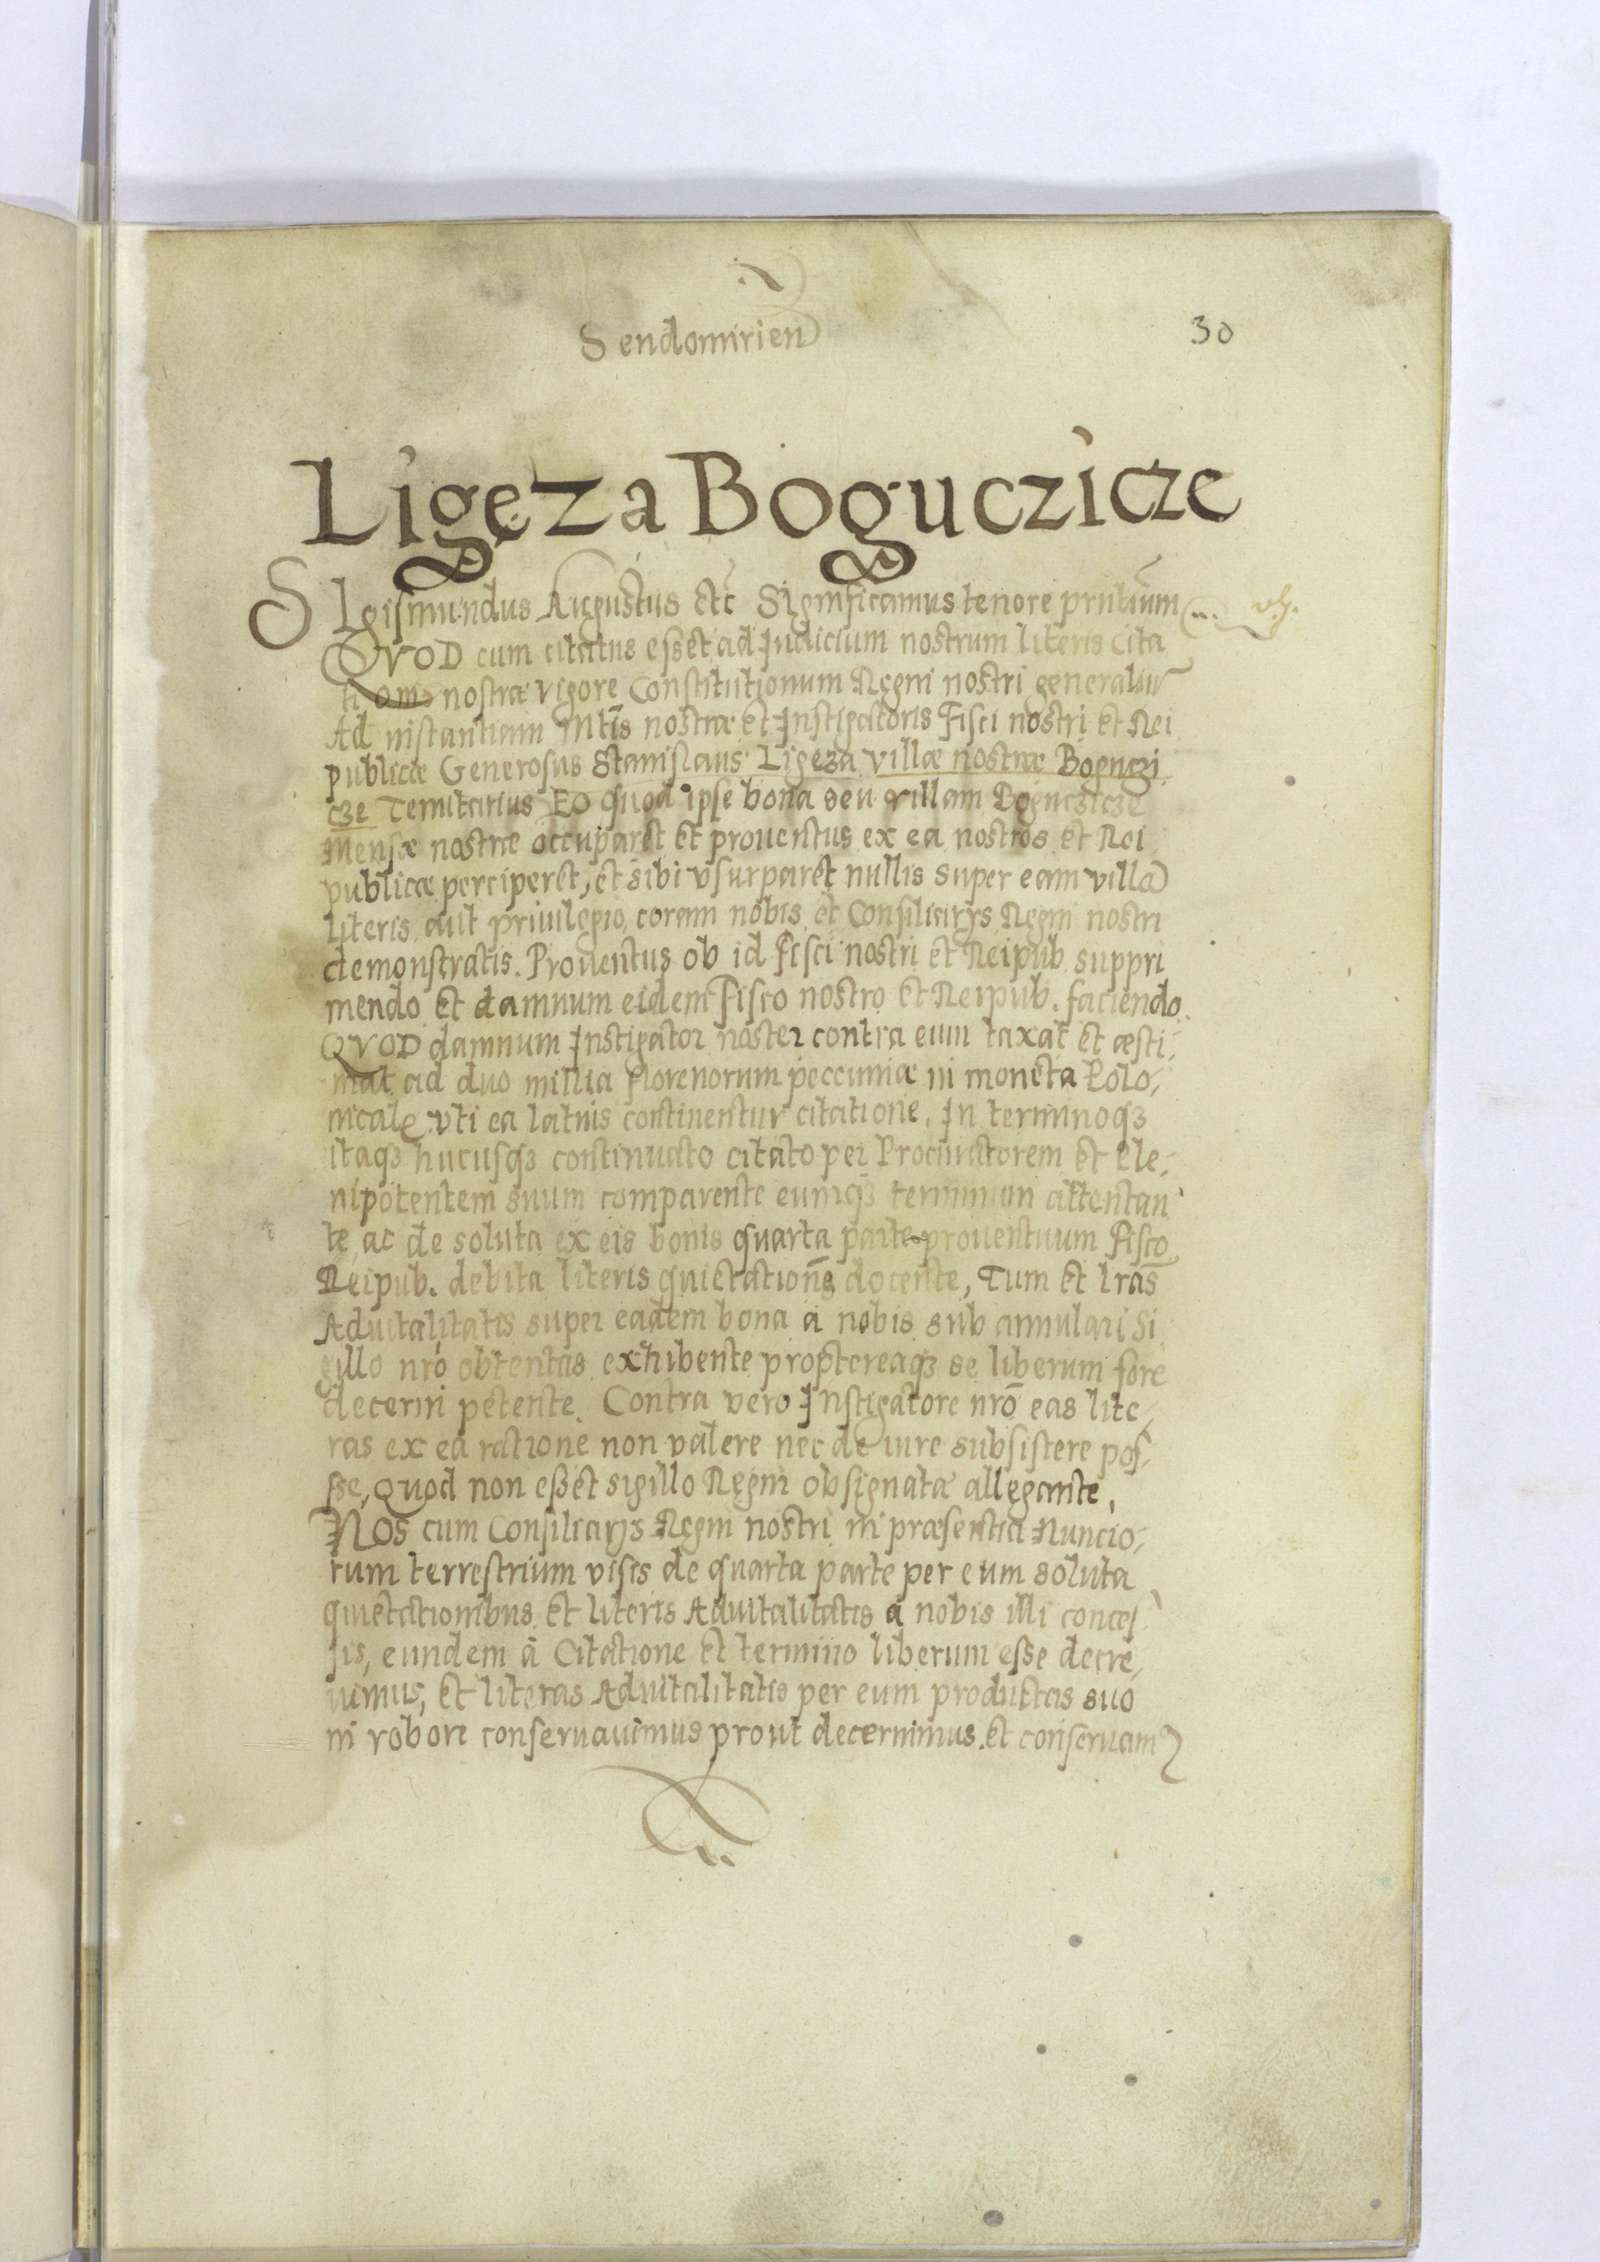 Sendomirien
30
Ligęza Boguczicze
SIgismundus Augustus etc Significamus tenore pñtium
QVOD cum citatus esset ad Iudicium nostrum literis Cita
tionis nostræ vigore Constitutionum Regni nostri generaliũ
Ad instantiam Mtis nostræ et Instigatoris Fisci nostri et Rei
publicæ Generosus Stanislaus Ligeza villæ nostræ Boguczi
cze Tenutarius EO quod ipse bona seu villam Boguczicze
Mensæ nostræ occuparet et prouentus ex ea nostros et Rei
publicæ perciperet, et sibi vsurparet nullis super eam villã
literis aut priuilegio coram nobis et Consiliarys Regni nostri
demonstratis. Prouentus ob id Fisci nostri et Reipub suppri
mendo et damnum eidem Fisco nostro et Reipub. faciendo.
QVOD damnum Instigator noster contra eum taxat et æsti,
mat ad duo millia florenorum peccuniæ in moneta Polo,
nicale vti ea latius continentur citatione. In terminoqȝ
itaqȝ hucusqȝ continuato citato per Procuratorem et Ple,
nipotentem suum comparente eumqȝ terminum attentan
te, ac de soluta ex eis bonis quarta parte prouentuum Fisco
Reipub. debita literis quictationũ docente, Tum et lras
Aduitalitatis super eadem bona à nobis sub annulari Si
gillo nrõ obtentas exhibente proptereaqȝ se liberum fore
decerni petente. Contra vero Instigatore nrõ eas lite,
ras ex ea ratione non valere nec de iure subsistere pos,
sse, Quod non essẽt sigillo Regni obsignatæ allegante,
NOS cum Consiliarys Regni nostri in præsentia Nuncio,
rum terrestrium visis de quarta parte per eum soluta
quietationibus et literis Aduitalitatis à nobis illi conces
sis, eundem à Citatione et termino liberum esse decre,
uimus, et literas Aduitalitatis per eum productas suo
in robore conseruauimus prout decernimus et conseruam9